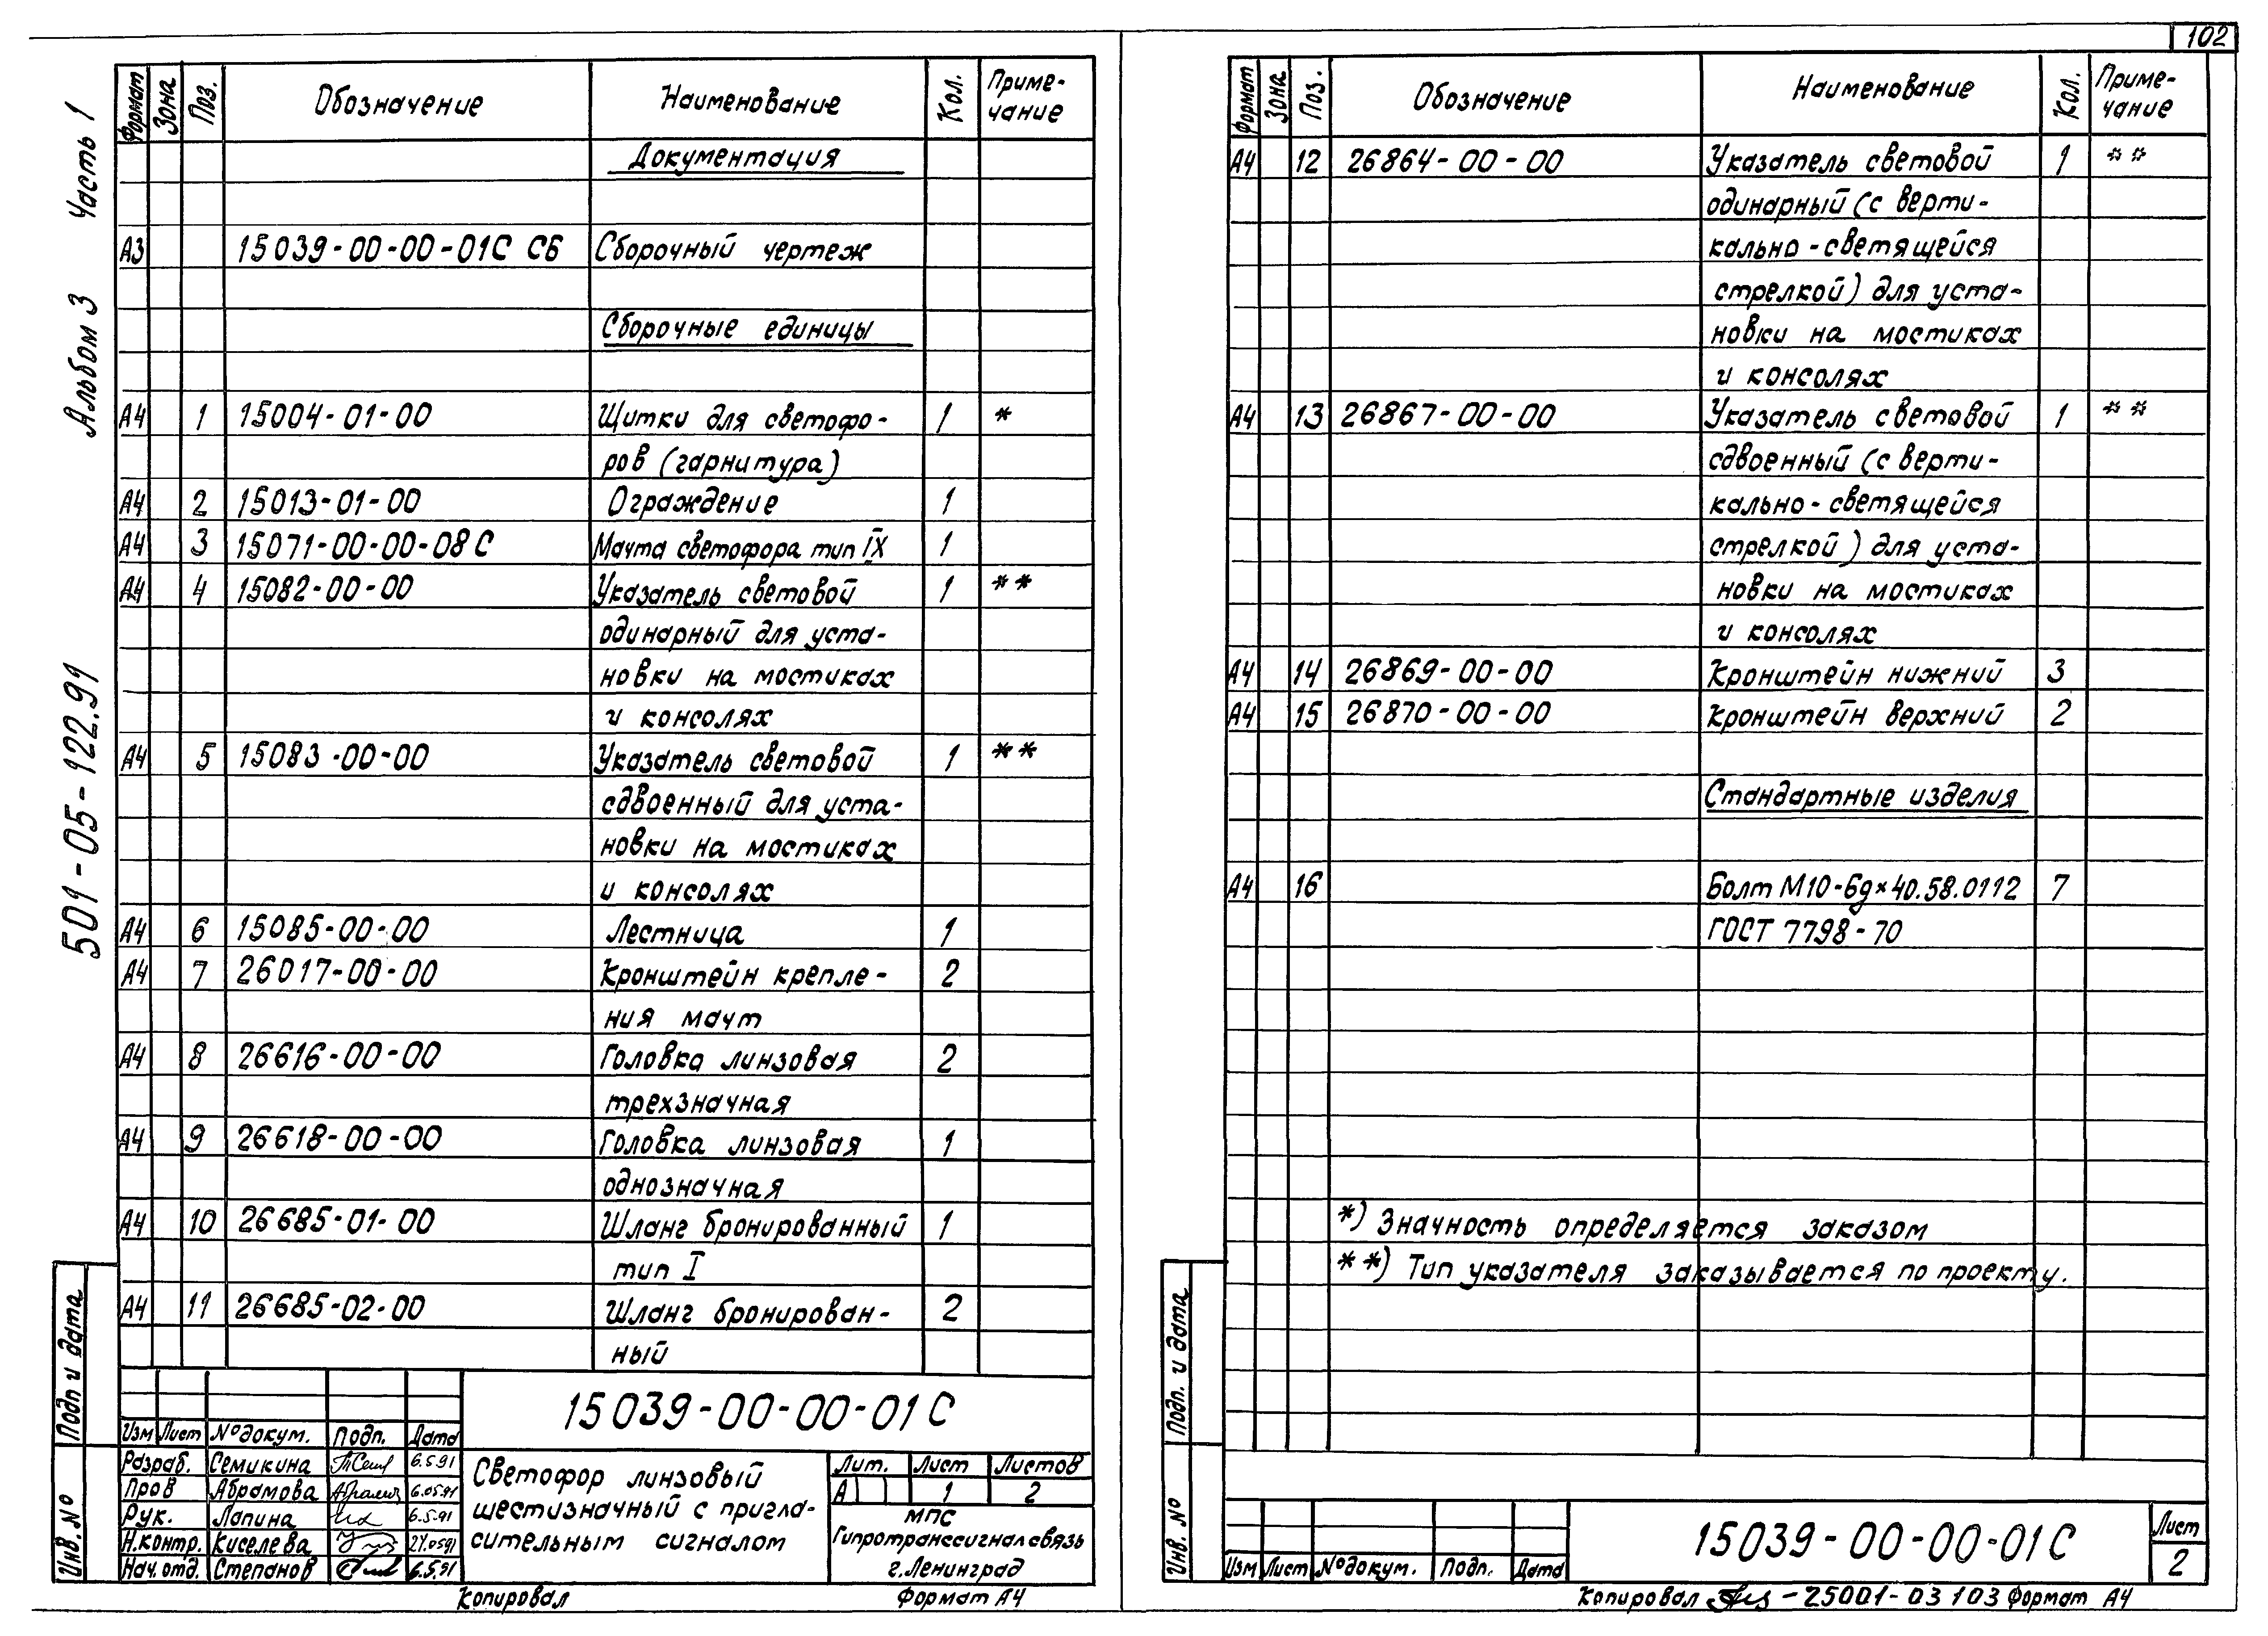 102
Альбом 3 Часть 1
501-05-122.91
Формат Зона Поз. Обозначение Наименование Кол. Приме-
чание
Документация
А3 15039-00-00-01С СБ Сборочный чертеж
Сборочные единицы
А4 1 15004-01-00 Щитки для светофо- 1 *
ров (гарнитура)
А4 2 15013-01-00 Ограждение 1
А4 3 15071-00-00-08С Мачта светофора тип IX 1
А4 4 15082-00-00 Указатель световой 1 **
одинарный для уста-
новки на мостиках
и консолях
А4 5 15083-00-00 Указатель световой 1 **
сдвоенный для уста-
новки на мостиках
и консолях
А4 6 15085-00-00 Лестница 1
А4 7 26017-00-00 Кронштейн крепле- 2
ния мачт
А4 8 26616-00-00 Головка линзовая 2
трехзначная
А4 9 26618-00-00 Головка линзовая 1
однозначная
А4 10 26685-01-00 Шланг бронированный 1
тип I
А4 11 26685-02-00 Шланг бронирован- 2
ный
Подп и дата
Инв. №
15039-00-00-01С
Изм Лист № докум. Подп. Дата
Разраб. Семикина 6.5.91
Пров Абрамова 6.05.91
Рук. Лапина 6.5.91
Н.контр. Киселева 27.0591
Нач. отд. Степанов 6.5.91
Светофор линзовый
шестизначный с пригла-
сительным сигналом
Лит. Лист Листов
А 1 2
МПС
Гипротранссигналсвязь
г. Ленинград
Копировал Формат А4
Формат Зона Поз. Обозначение Наименование Кол. Приме-
чание
А4 12 26864-00-00 Указатель световой 1 **
одинарный (с верти-
кально-светящейся
стрелкой) для уста-
новки на мостиках
и консолях
А4 13 26867-00-00 Указатель световой 1 **
сдвоенный (с верти-
кально-светящейся
стрелкой) для уста-
новки на мостиках
и консолях
А4 14 26869-00-00 Кронштейн нижний 3
А4 15 26870-00-00 Кронштейн верхний 2
Стандартные изделия
А4 16 Болт М10-6g×40.58.0112 7
ГОСТ 7798-70
*) Значность определяется заказом
**) Тип указателя заказывается по проекту.
Подп. и дата
Инв. №
Изм Лист № докум. Подп. Дата
15039-00-00-01С
Лист
2
Копировал - 25001-03 103 Формат А4